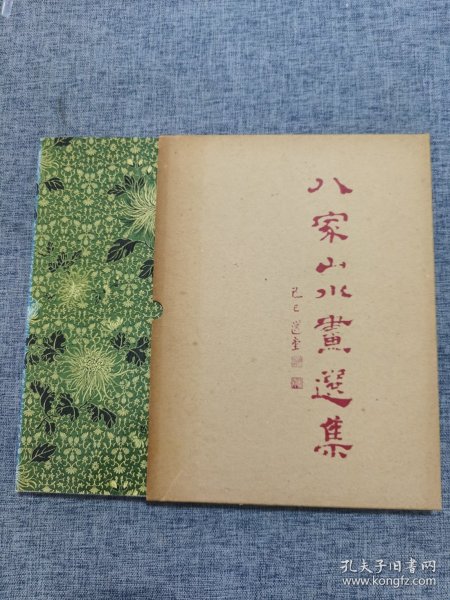 八家山水畫選集
己巳選堂
孔夫子旧书网
www.kongfz.com